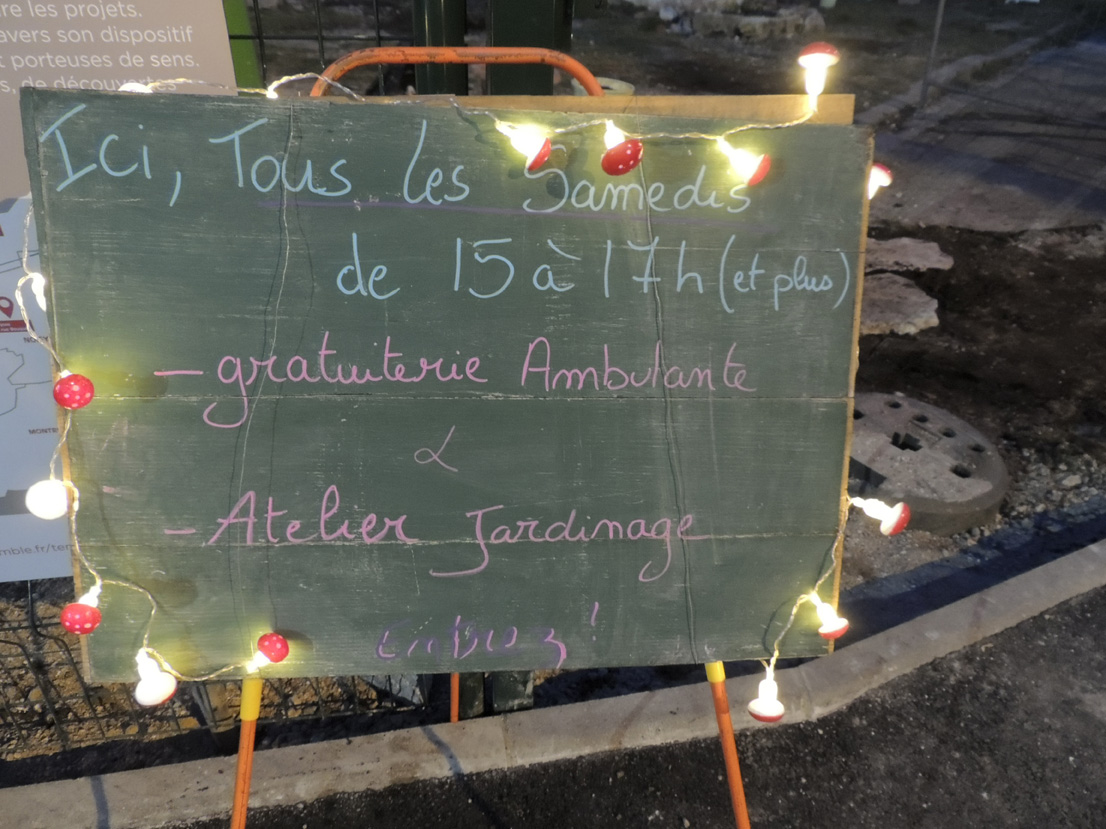 re les projets.
avers son dispositif
t porteuses de sens.
s, de découvertes
Ici, Tous les Samedis
de 15 à 17h (et plus)
- gratuiterie Ambulante
&
- Atelier Jardinage
Entrez !
mble.fr/ter